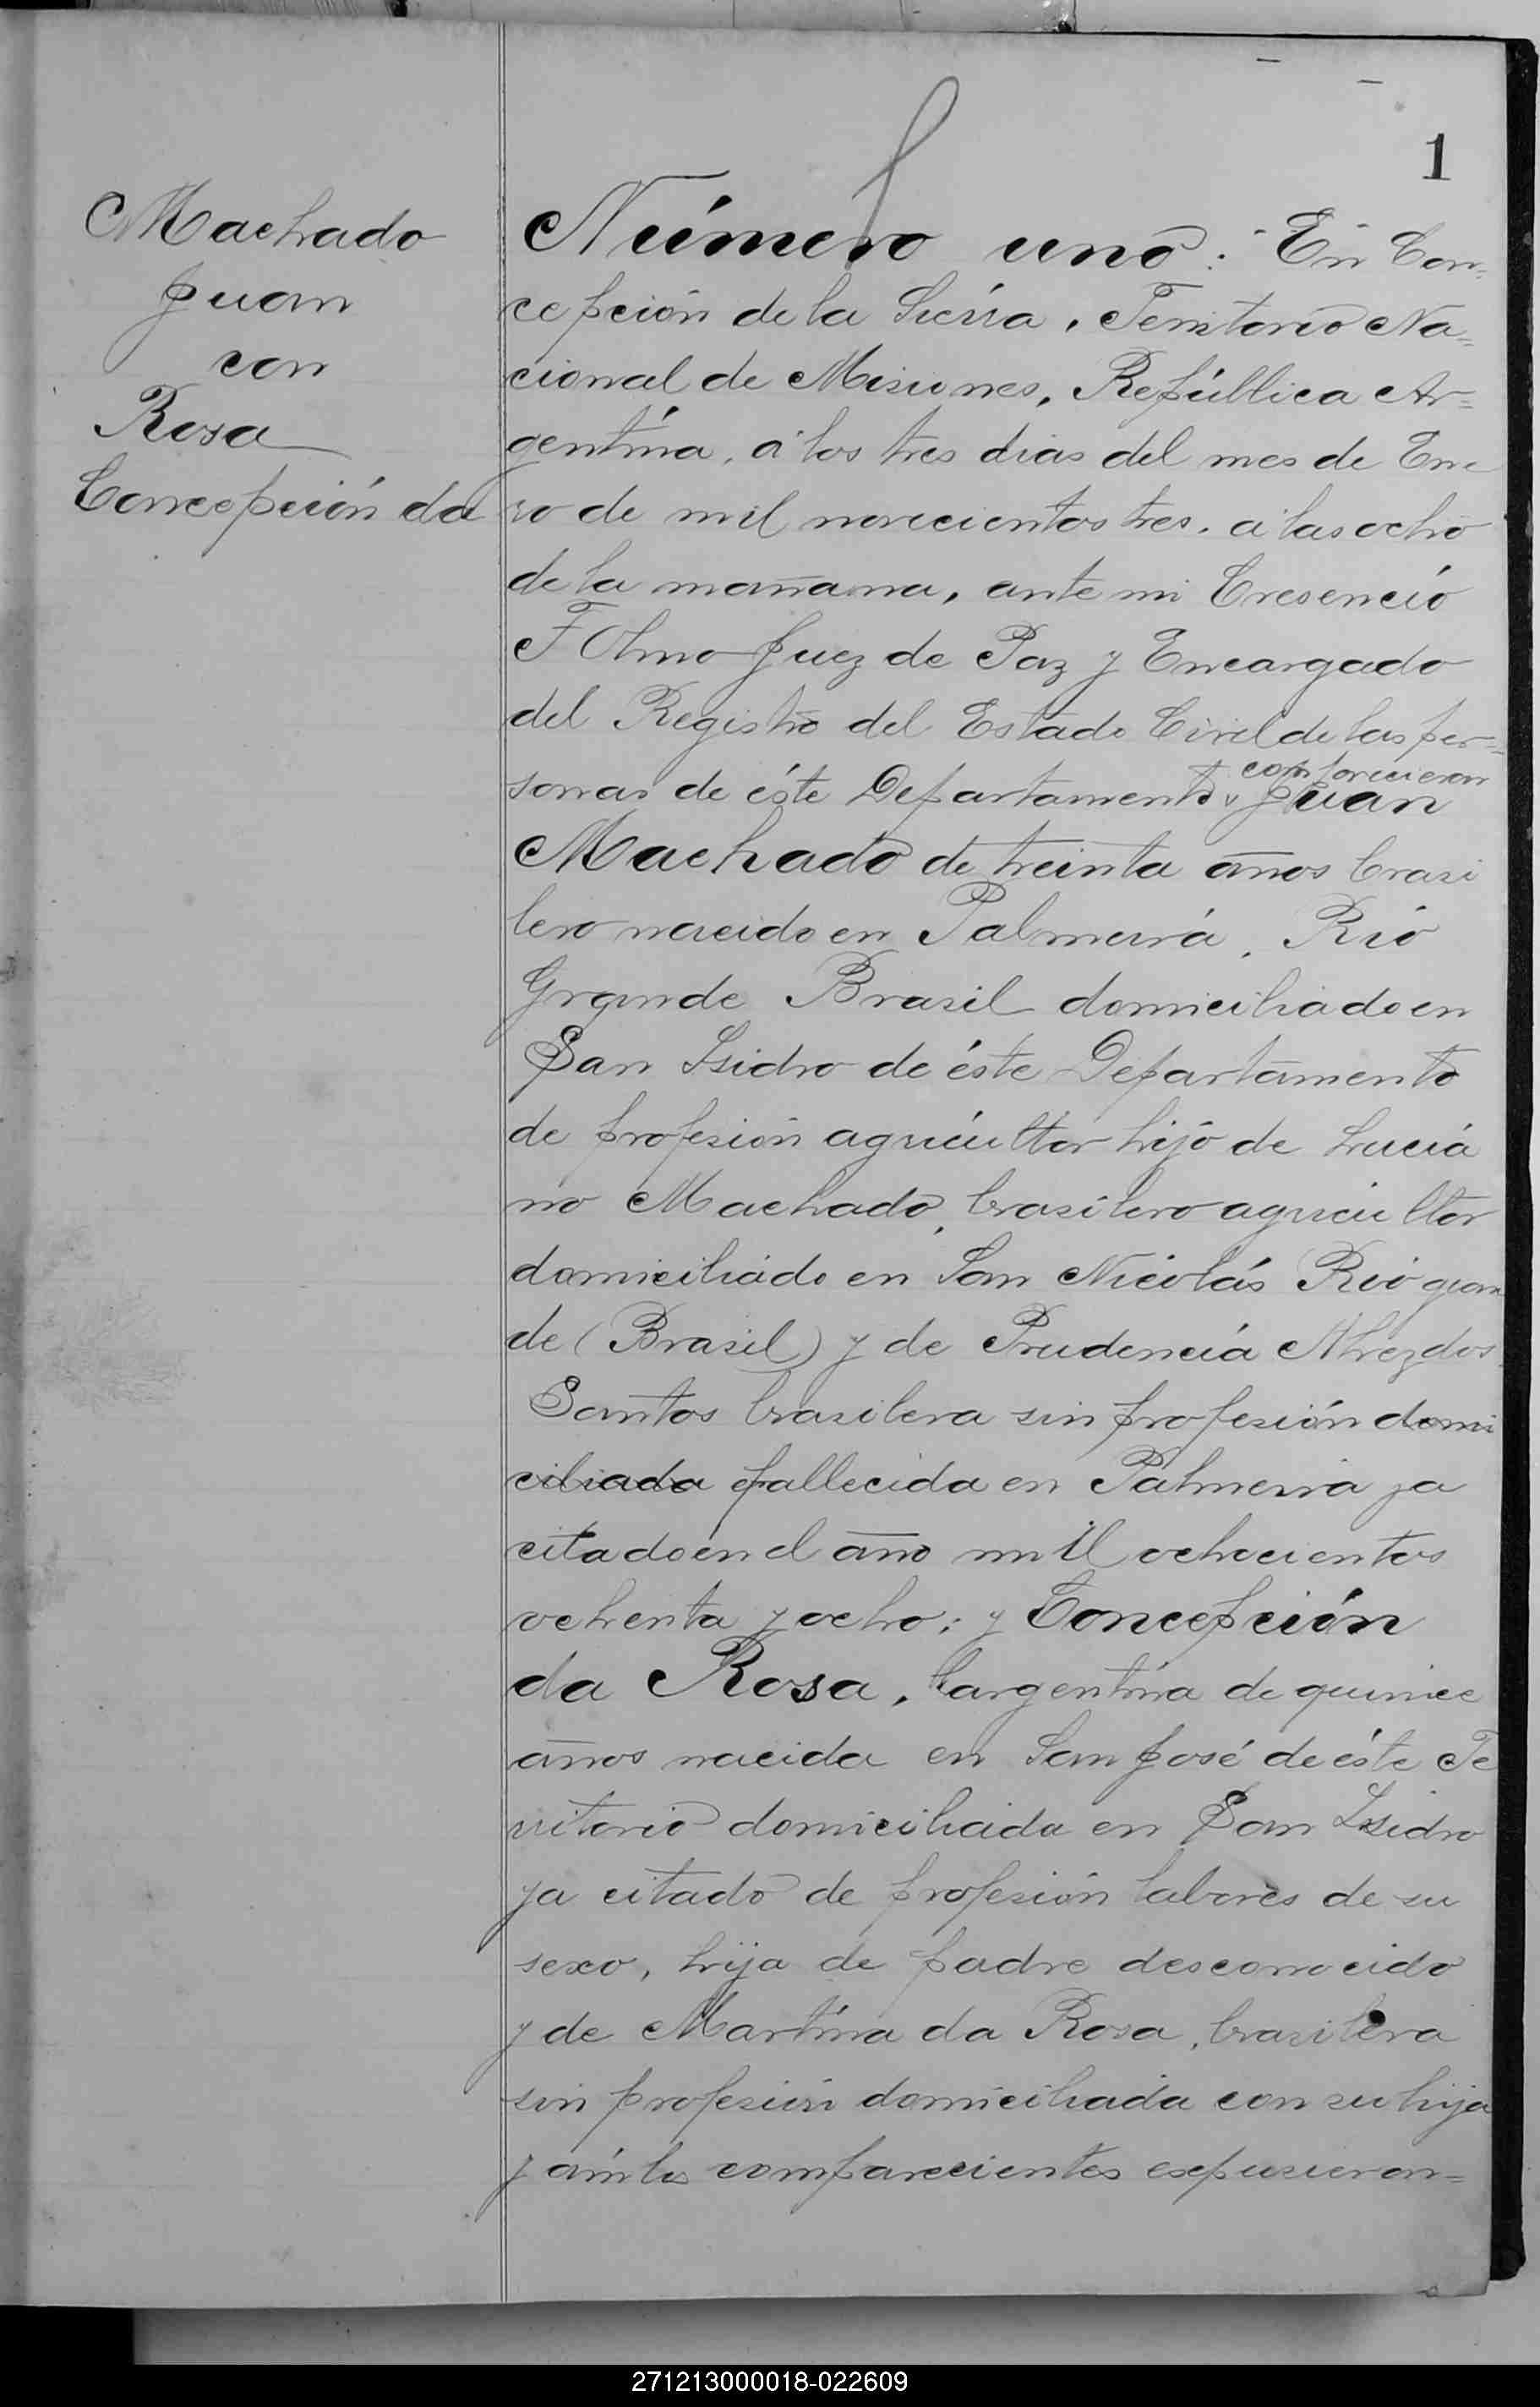 1
Machado
Juan
con
Rosa
Concepción da
Número uno: En Con=
cepción de la Sierra, Territorio Na=
cional de Misiones, República Ar=
gentína, á los tres dias del mes de Ene
ro de mil novecientos tres, á las ocho
de la mañana, ante mi Cresencio
F Olmo Juez de Paz y Encargado
del Registro del Estado Civil de las per=
comparecieron
sonas de éste Departamento Juan
Machado de treinta años brasi
lero nacido en Palmeira, Rio
Grande Brasil domiciliado en
San Isidro de éste Departamento
de profesión agricultor hijo de Lucia
no Machado, brasilero agricultor
domiciliado en San Nicolás Rio gran
de (Brasil) y de Prudencia dos
Santos brasilera sin profesión domi
ciliada fallecida en Palmeira ya
citado en el año mil ochocientos
ochenta y ocho; y Concepción
da Rosa, argentína de quince
años nacida en San José de éste Te
rritorio domiciliada en San Isidro
ya citado de profesión labores de su
sexo, hija de padre desconocido
y de Martína da Rosa, brasilera
sin profesión domiciliada con su hija
y ámbos comparecientes espusieron=
271213000018-022609